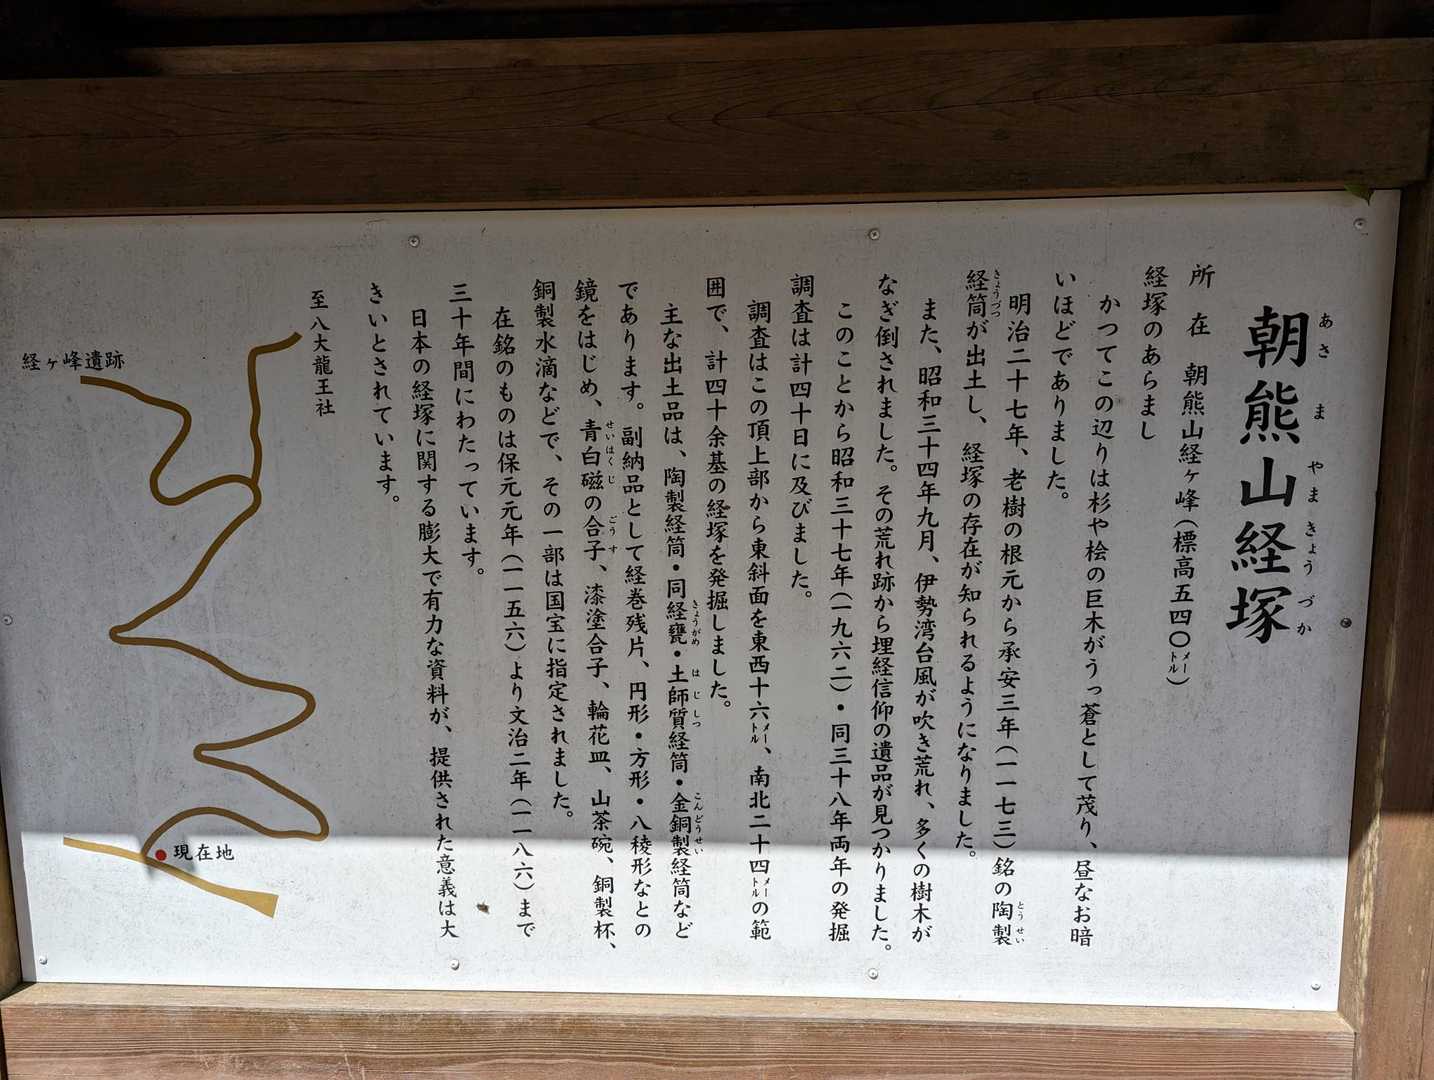 朝熊山経塚
あさ ま やまきょう づか
所 在 朝熊山経ヶ峰（標高五四〇メートル）
経塚のあらまし
かつてこの辺りは杉や桧の巨木がうっ蒼として茂り、昼なお暗
いほどでありました。
明治二十七年、老樹の根元から承安三年（一一七三）銘の陶製
とうせい
経筒が出土し、経塚の存在が知られるようになりました。
きょうづつ
また、昭和三十四年九月、伊勢湾台風が吹き荒れ、多くの樹木が
なぎ倒されました。その荒れ跡から埋経信仰の遺品が見つかりました。
このことから昭和三十七年（一九六二）・同三十八年両年の発掘
調査は計四十日に及びました。
調査はこの頂上部から東斜面を東西十六メートル、南北二十四メートルの範
囲で、計四十余基の経塚を発掘しました。
主な出土品は、陶製経筒・同経甕・土師質経筒・金銅製経筒など
きょうがめ はじしつ こんどうせい
であります。副納品として経巻残片、円形・方形・八稜形などの
鏡をはじめ、青白磁の合子、漆塗合子、輪花皿、山茶碗、銅製杯、
せいはくじ ごうす
銅製水滴などで、その一部は国宝に指定されました。
在銘のものは保元元年（一一五六）より文治二年（一一八六）まで
三十年間にわたっています。
日本の経塚に関する膨大で有力な資料が、提供された意義は大
きいとされています。
至八大龍王社
経ヶ峰遺跡
現在地